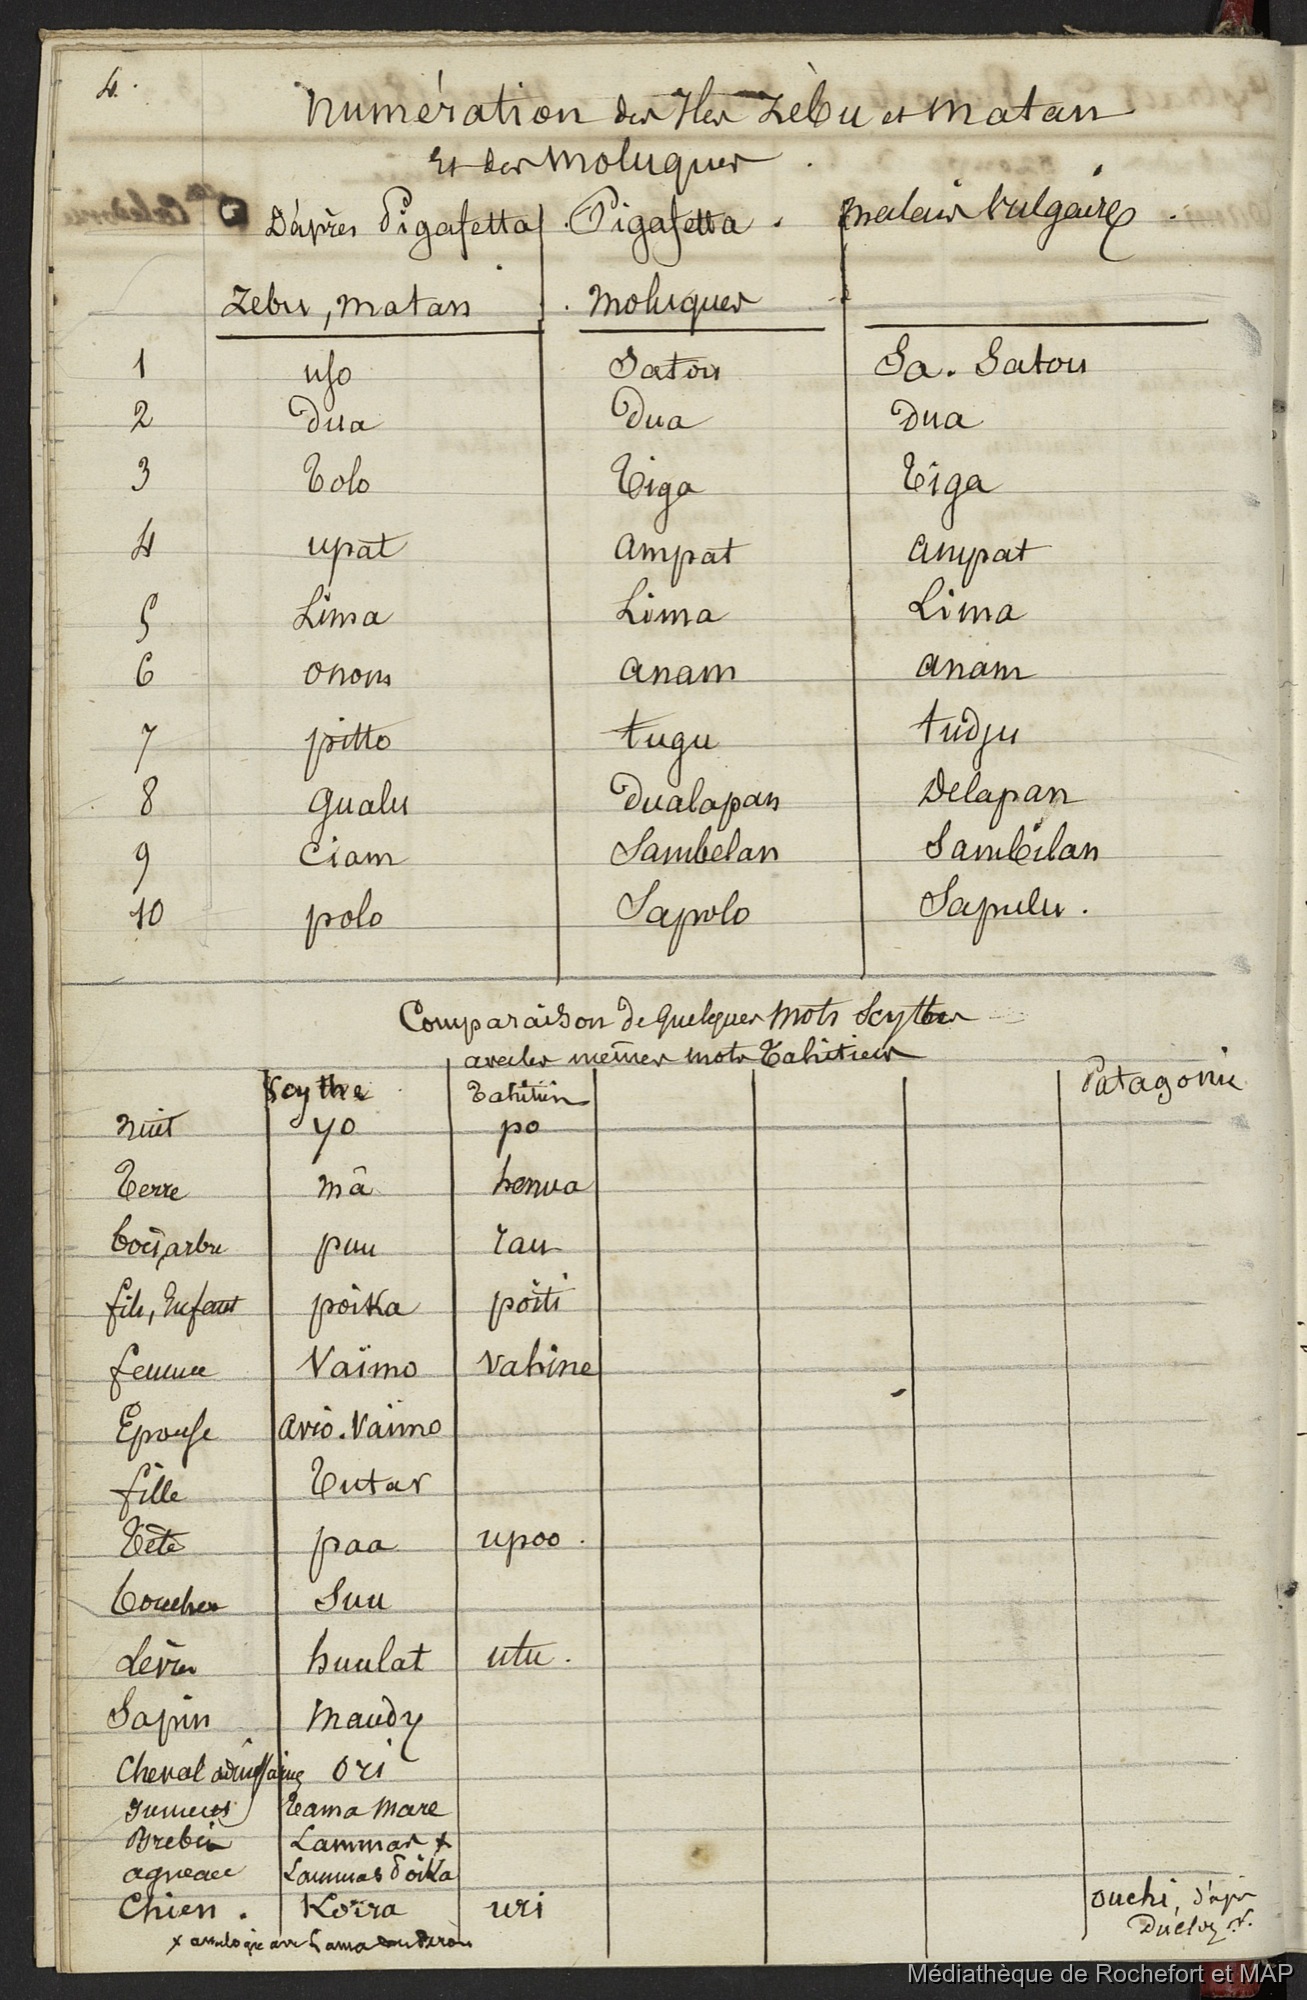 4.
Numération des Iles Zèbu et Matan
Et des Moluques.
D'après Pigafetta Pigafetta. Malais Vulgaire.
Zebu, Matan Moluques
1 uso Satou Sa. Satou
2 Dua Dua Dua
3 Tolo Tiga Tiga
4 upat ampat ampat
5 Lima Lima Lima
6 onom anam anam
7 pitto tugu tudju
8 gualu Dualapan Delapan
9 Ciam Sambelan Sambilan
10 polo Sapolo Sapulu.
Comparaison de quelques mots Scythes
avec les mêmes mots Tahitiens
Scythe Tahitien Patagonie
Nuit yo po
Terre mâ henua
bois, arbre puu raau
fils, Enfant poïka poïti
femme Vaïmo Vahine
Epouse avio. Vaïmo
fille Tutar
Tête paa upoo.
bouche Suu
Lèvres huulat utu.
Sapin Maudy
Cheval ori
Jument Tama Mare
Brebis Lammas x
agneau Lammas Poika
Chien. Koïra uri ouchi, d'après
Duclos
x analogie avec Lama du Pérou
Médiathèque de Rochefort et MAP